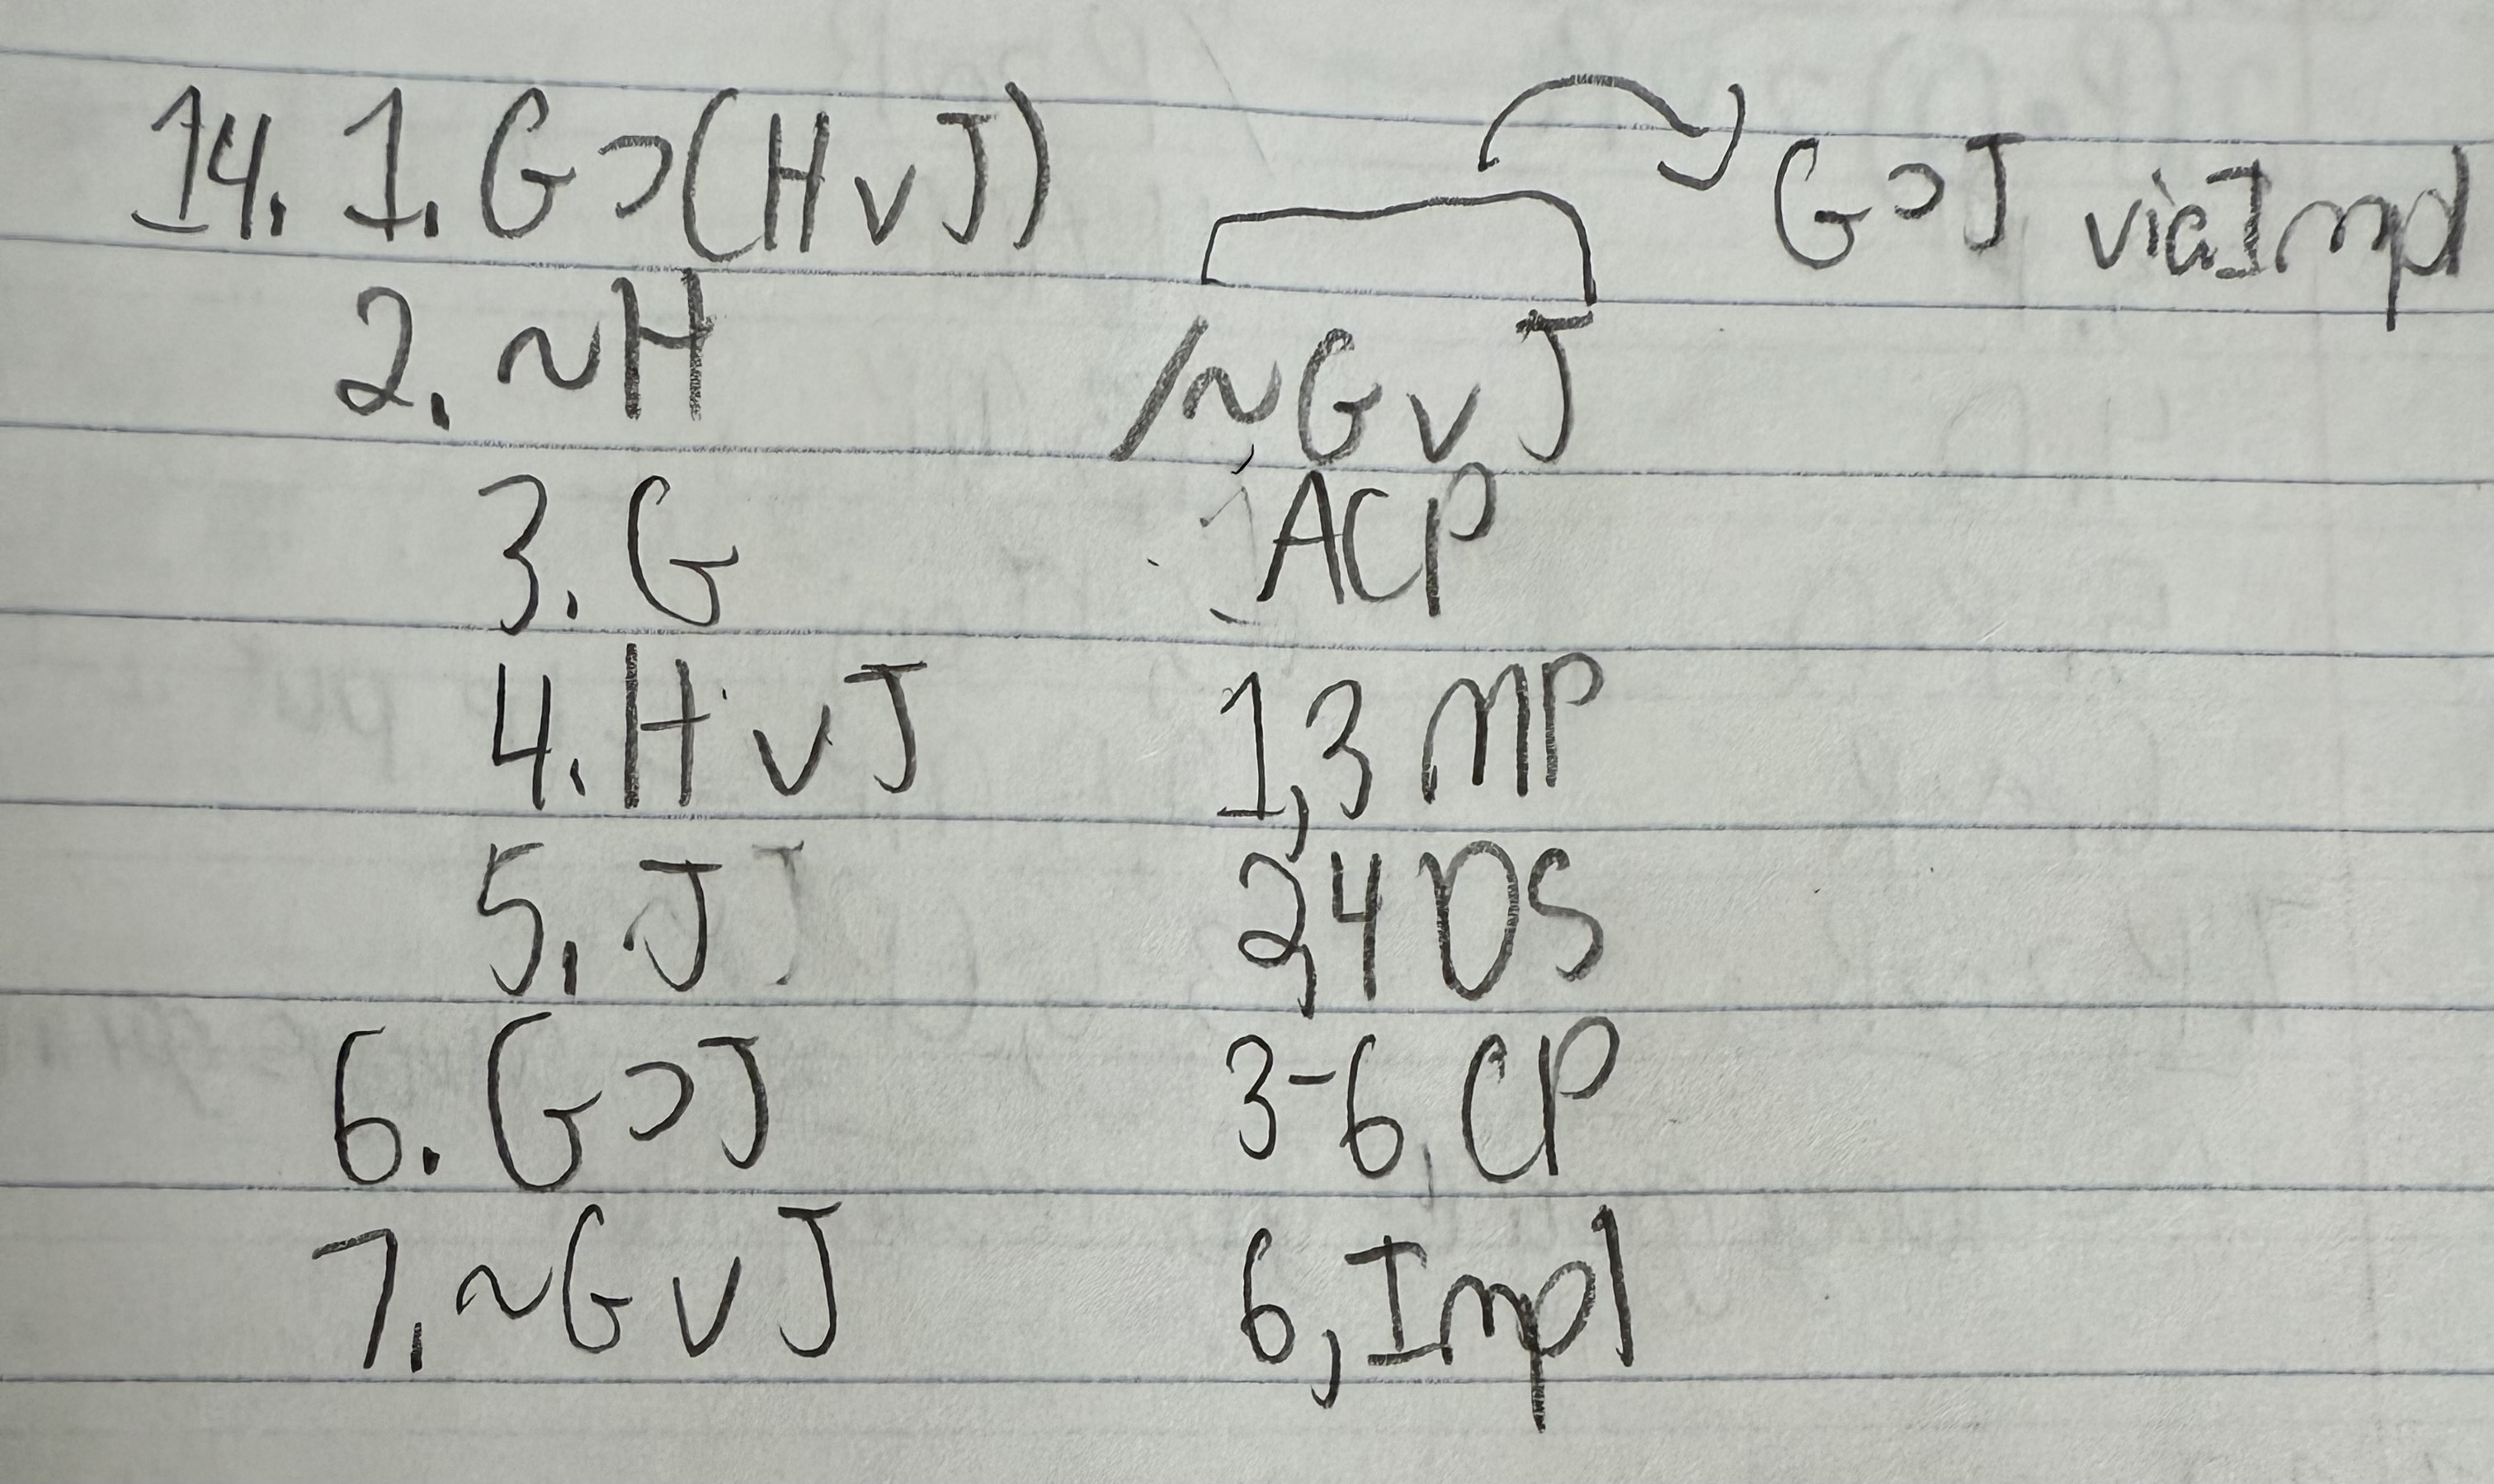 14. 1. G⊃(H∨J)
G⊃J via Impl
2. ~H /~G∨J
3. G ACP
4. H∨J 1,3 MP
5. J 2,4 DS
6. G⊃J 3-6, CP
7. ~G∨J 6, Impl